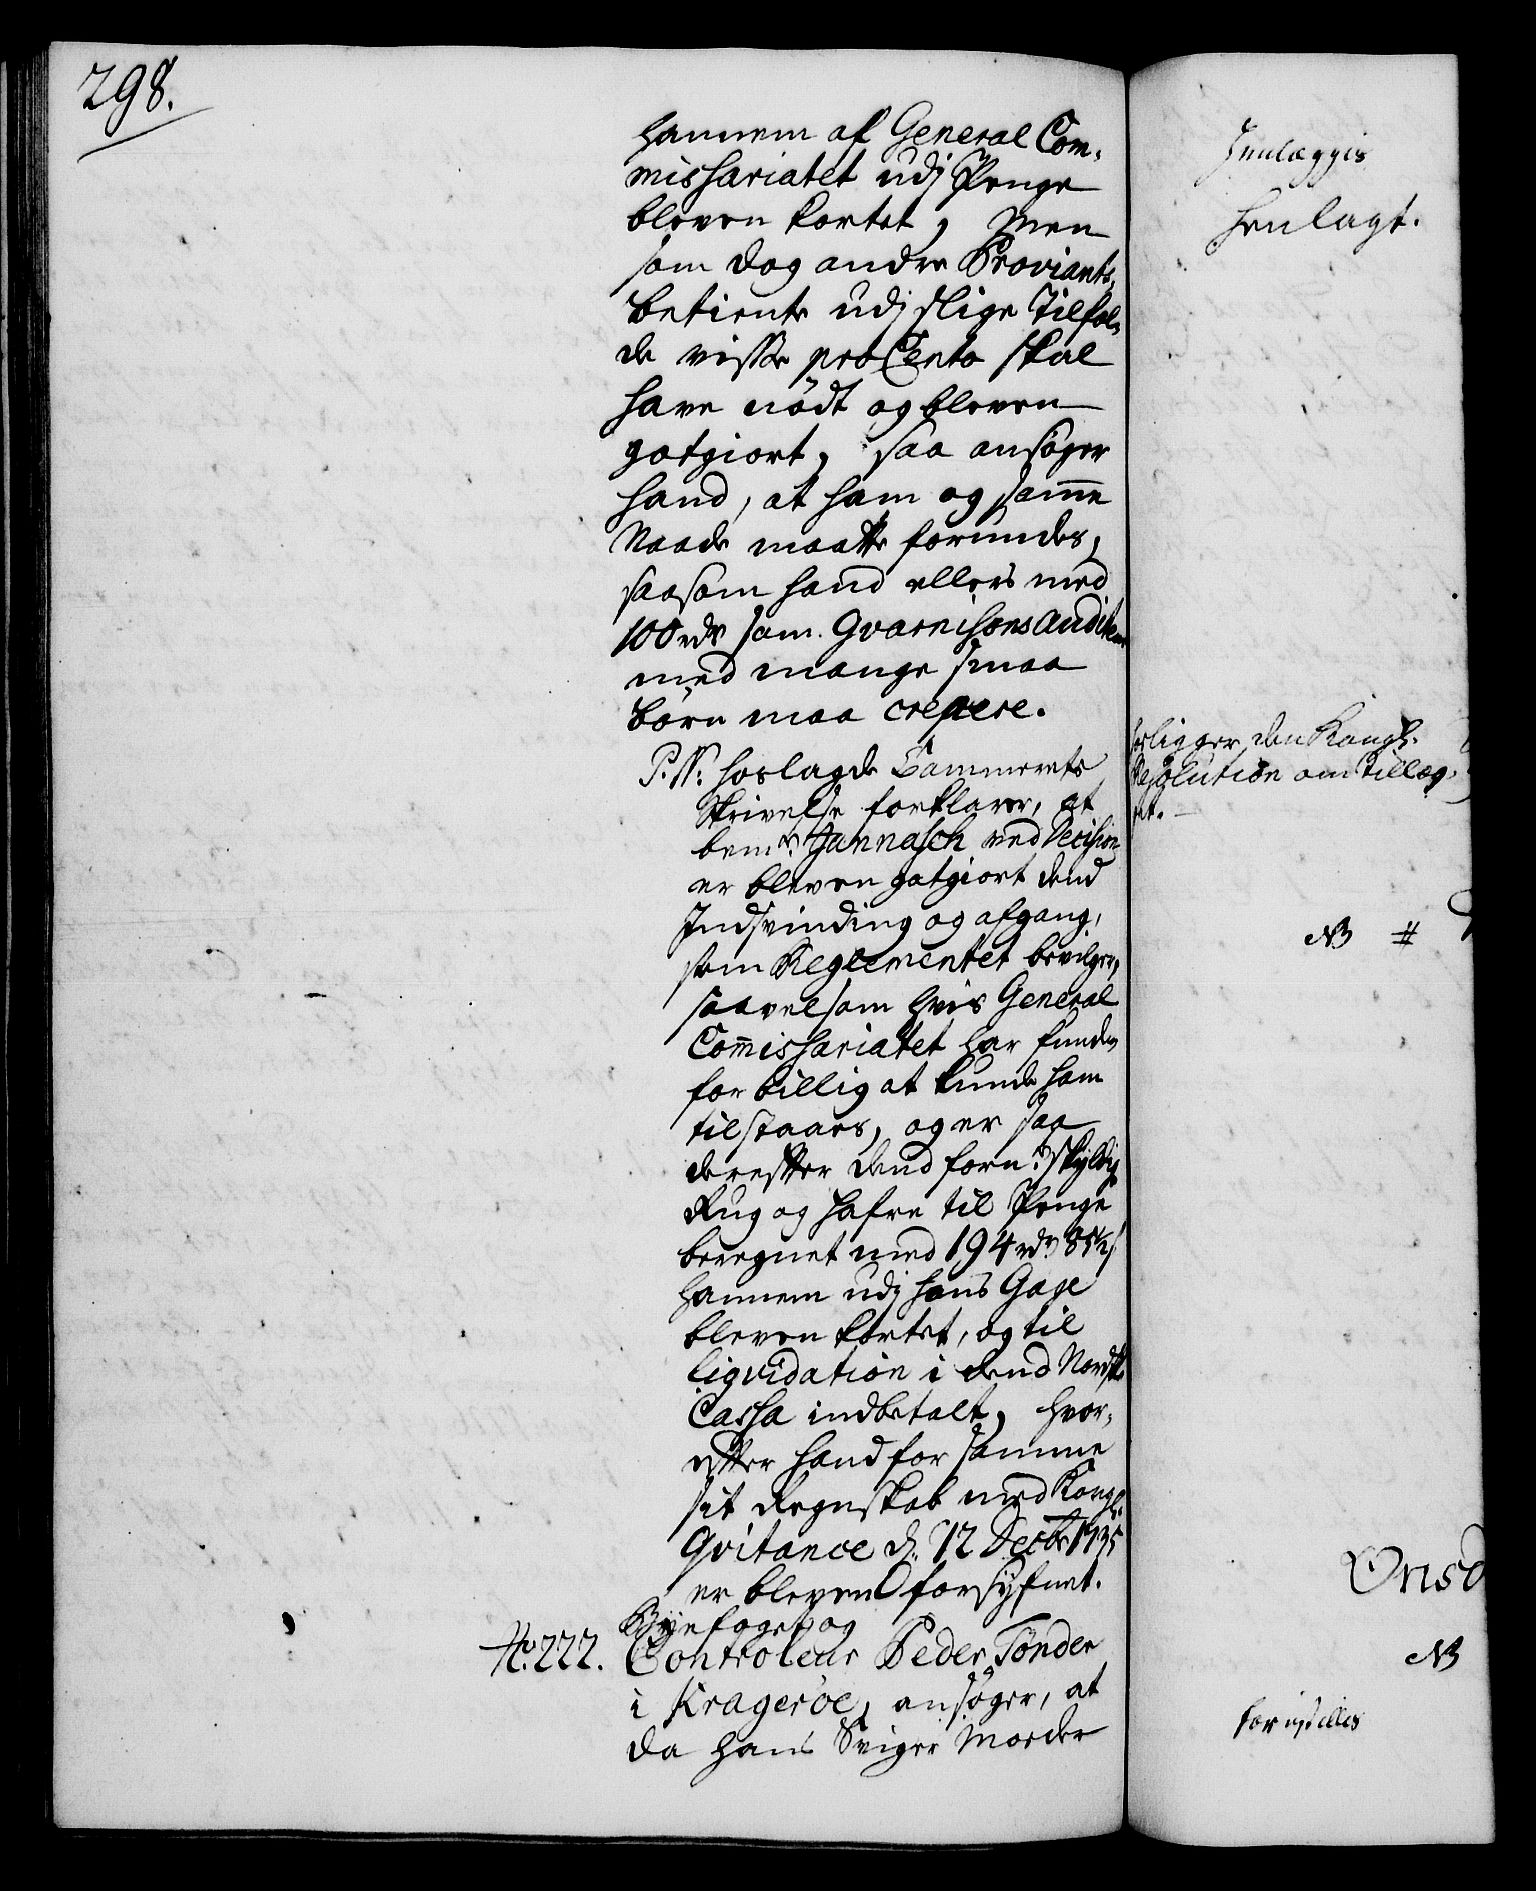 298.
hannem af General Com¬
missariatet udj Penge
bleven kortet, Men
som dog andre Proviants¬
betiente udj slige Tilfæl¬
de visse pro Cento skal
have nødt og bleven
gotgiort, saa ansøger
hand, at ham og samme
Naade maatte forundes,
saasom hand ellers med
100 rdr som Gvarnisons Auditeur
med mange smaa
børn maa crepere.
P. N: hoslagde Cammerets
Skrivelse forklarer, at
bemte Jannasch ved Decision
er bleven gotgiort dend
Indsvinding og afgang,
som Reglementet bevilger,
saavelsom hvis General
Commissariatet har funden
for billig at kunde ham
tilstaaes, og er saa
derefter dend fornte skyldig
Rug og Hafre til Penge
beregnet med 194 rdr 85½ s
hannem udj hans Gage
bleven kortet, og til
liqvidation i dend Nordske
Cassa indbetalt, hvor¬
efter hand for samme
sit Regnskab med Kongl.
Qvitance d: 12 Decbr 1735
er bleven forsyfnet.
Byefoget og
No. 222. Controleur Peder Tønder
i Kragerøe, ansøger, at
da hans Sviger Moeder
Indlægges
henlagt.
hosligger den Kongl.
Resolution om Tillæg¬
get.
NB #
Onsd
NB
forestilles